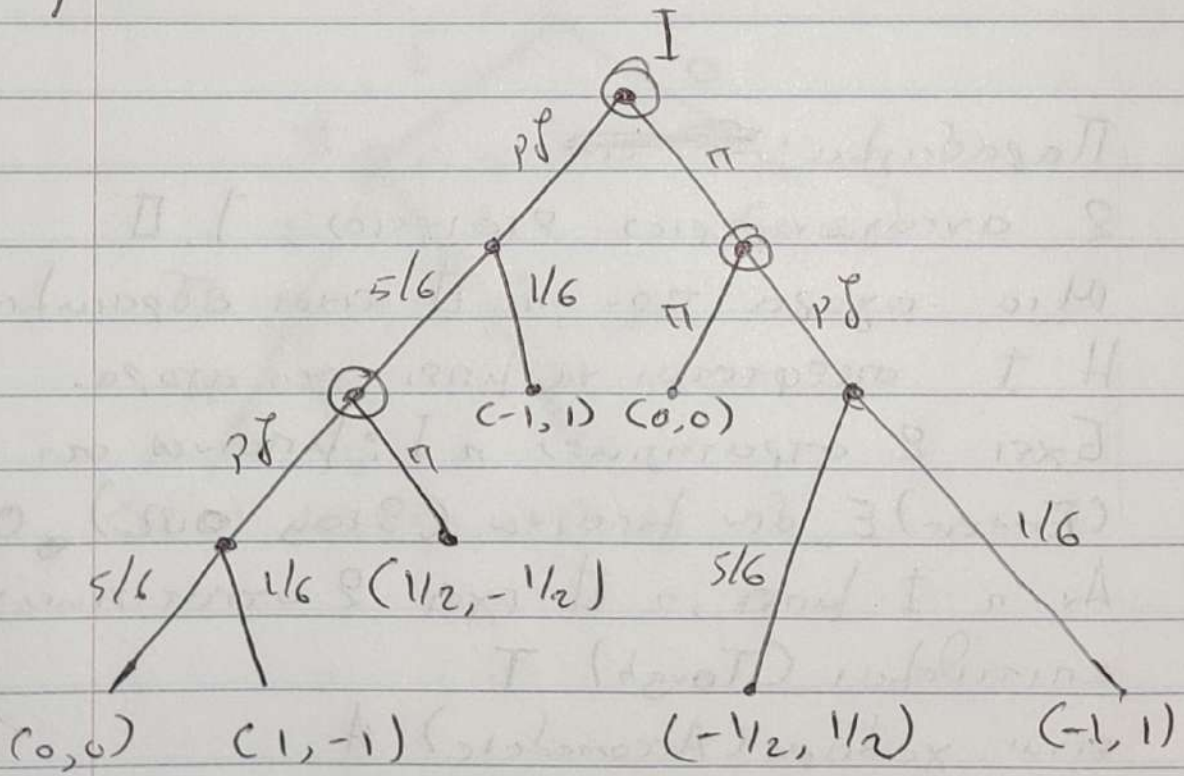 I
ρζ π
5/6 1/6 π ρζ
(-1, 1) (0,0)
ρζ π
5/6 1/6 (1/2, -1/2) 5/6 1/6
(0,0) (1, -1) (-1/2, 1/2) (-1, 1)